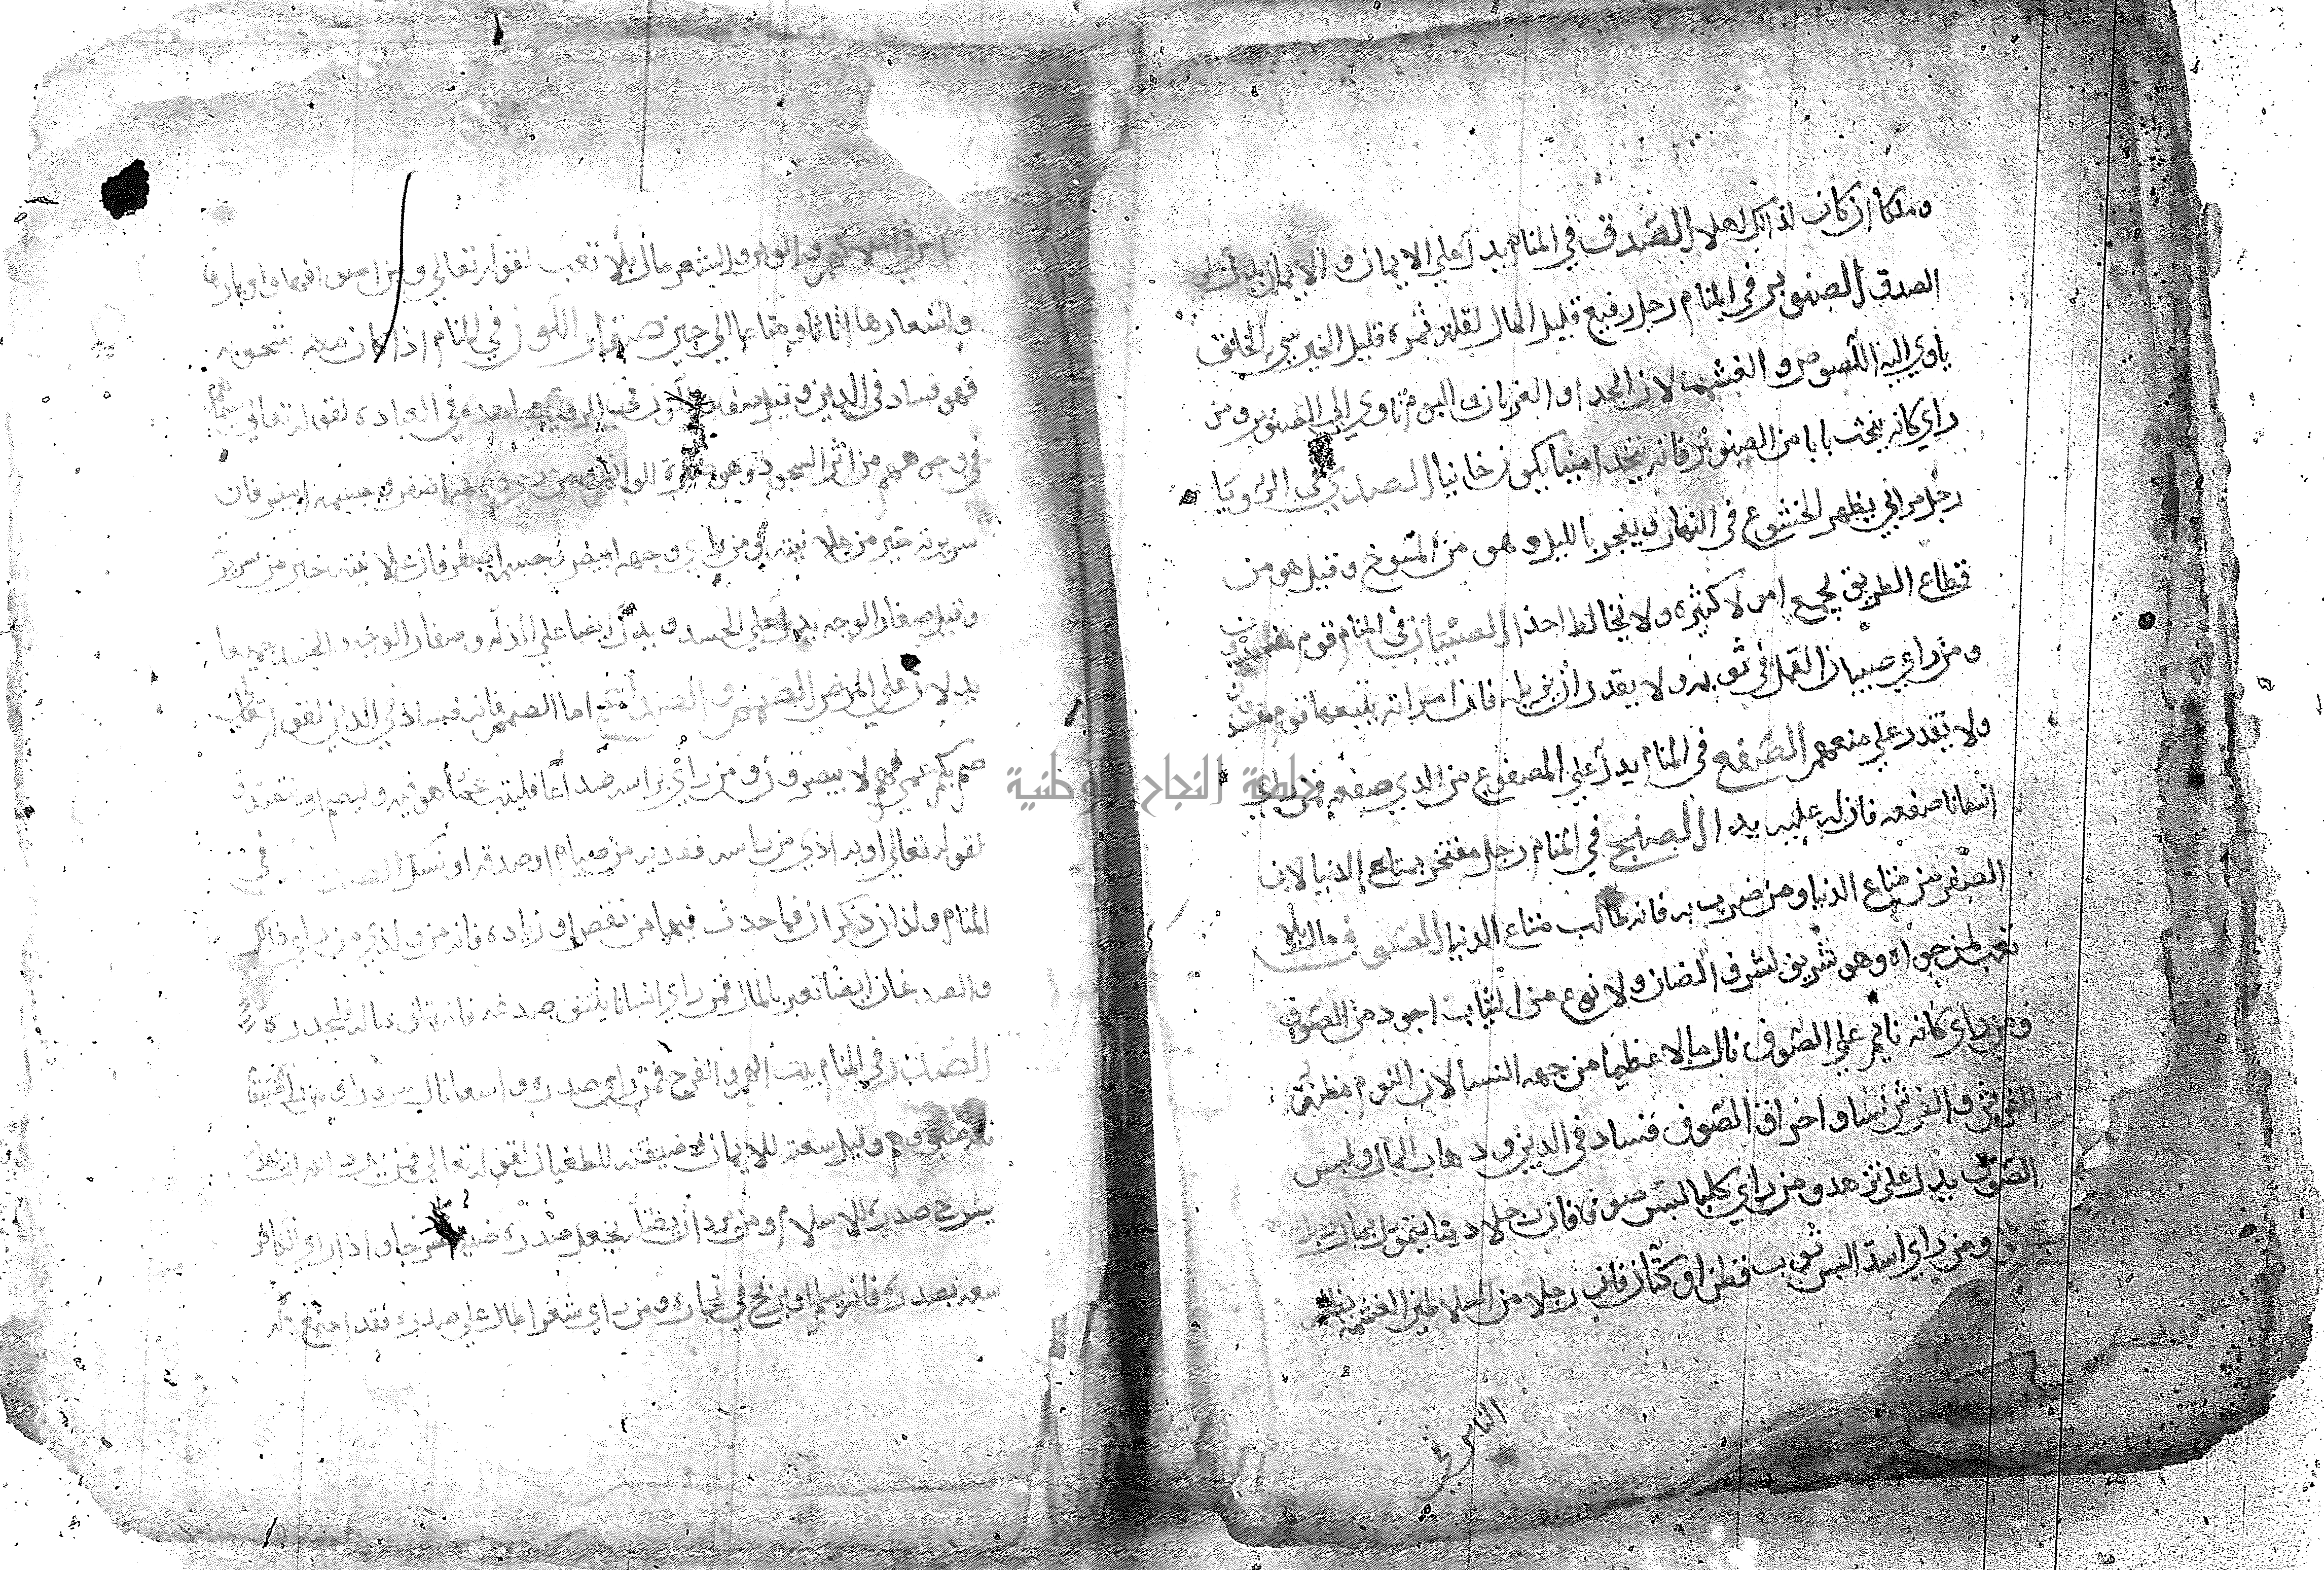 وملكا ان كان لذلك اهلا الصدق في المنام يدل علي الايمان والايمان يدل علي
الصدق الصنوبر في المنام رجل رفيع قليل المال لقلة ثمره قليل الخير سيء الخلق
ياوي اليه اللصوص والغشمة لان الحداو الغربان والبوم تاوي الي الصنوبر ومن
راي كانه ينحت بابا من الصنوبر فانه يتخد امينا يكون خاينا الصدي في الرويا
رجل مراي يظهر الخشوع في النهار ويفجر بالليل وهو من المسوخ وقيل هو من
قطاع الطريق يجمع اموالا كثيره ولا يخالط احدا الصيبان في المنام قوم مفسدون
ومن راي صيبان القمل في ثوبه ولا يقدر ان يزيله فان امراته يتبعها قوم مفسدون
ولا يقدر علي منعهم الصفع في المنام يدل علي المصفوع من الدي صفعه فمن راي
انسانا صفعه فان له عليه يدا الصنج في المنام رجل مفتخر بمتاع الدنيا لان
الصفر من متاع الدنيا ومن ضرب به فانه طالب متاع الدنيا الصوف مال بلا
تعب لمن حواه وهو شريف لشرف الضان ولا نوع من الثياب اجود من الصوف
ومن راي كانه نايم علي الصوف نال مالا عظيما من جهه النسا لان النوم مظنة
الفرش والفرش نسا واحراق الصوف فساد في الدين ودهاب المال ولبس
الصوف يدل علي تزهد ومن راي كلبا لبس صوفا فان رجلا دينا يتمول بمال رجل
ومن راي اسدا لبس ثوب قطن او كتان فان رجلا من السلاطين الغشمة يظلم
الناس في
ناس في املاكهم والوبر والشعر مال بلا تعب لقوله تعالي ومن اصوافها واوبارها
واشعارها اثاثا ومتاعا الي حين صفار اللون في المنام اذا كان معه شحوبه
فهو فساد في الدين وقيل صفار اللون في الرويا مجاهده في العباده لقوله تعالي سيماهم
في وجوههم من اثر السجود وهو صفرة الوان ومن راي وجهه اصفر وجسمه ابيض فان
سريرته خير من علانيته ومن راي وجهه ابيض وجسمه اصفر فان علانيته خير من سريرته
وقيل صفار الوجه يدل علي الحسد ويدل ايضا علي الذله وصفار الوجه والجسد جميعا
يدلان علي المرض الصمم والصداع اما الصمم فانه فساد في الدين لقوله تعالي
صم بكم عمي فهم لا يبصرون ومن راي براسه صداعا فليتب عما هو فيه ويصم او يتصدق
لقوله تعالي او به اذي من راسه ففدية من صيام او صدقه او نسك الصدغ في
المنام ولدان ذكران فما حدث فيهما من نقص او زياده فانه من ولدي من راي ذلك
والصدغان ايضا تعبر بالمال فمن راي انسانا ينتف صدغه فانه يتلف ماله فليحدره
الصدر في المنام بيت الهم والفرح فمن راي صدره واسعا نال سرورا ومن راي ضيقا
ناله ضيق وهم وقيل سعته للايمان وضيقته للطغيان لقوله تعالي فمن يرد الله ان يهديه
يشرح صدره للاسلام ومن يرد ان يضله يجعل صدره ضيقا حرجا واذا راي الكافر
سعه بصدره فانه يسلم او يربح في تجاره ومن راي شعرا طال علي صدره فقد اجتمع
جامعة النجاح الوطنية